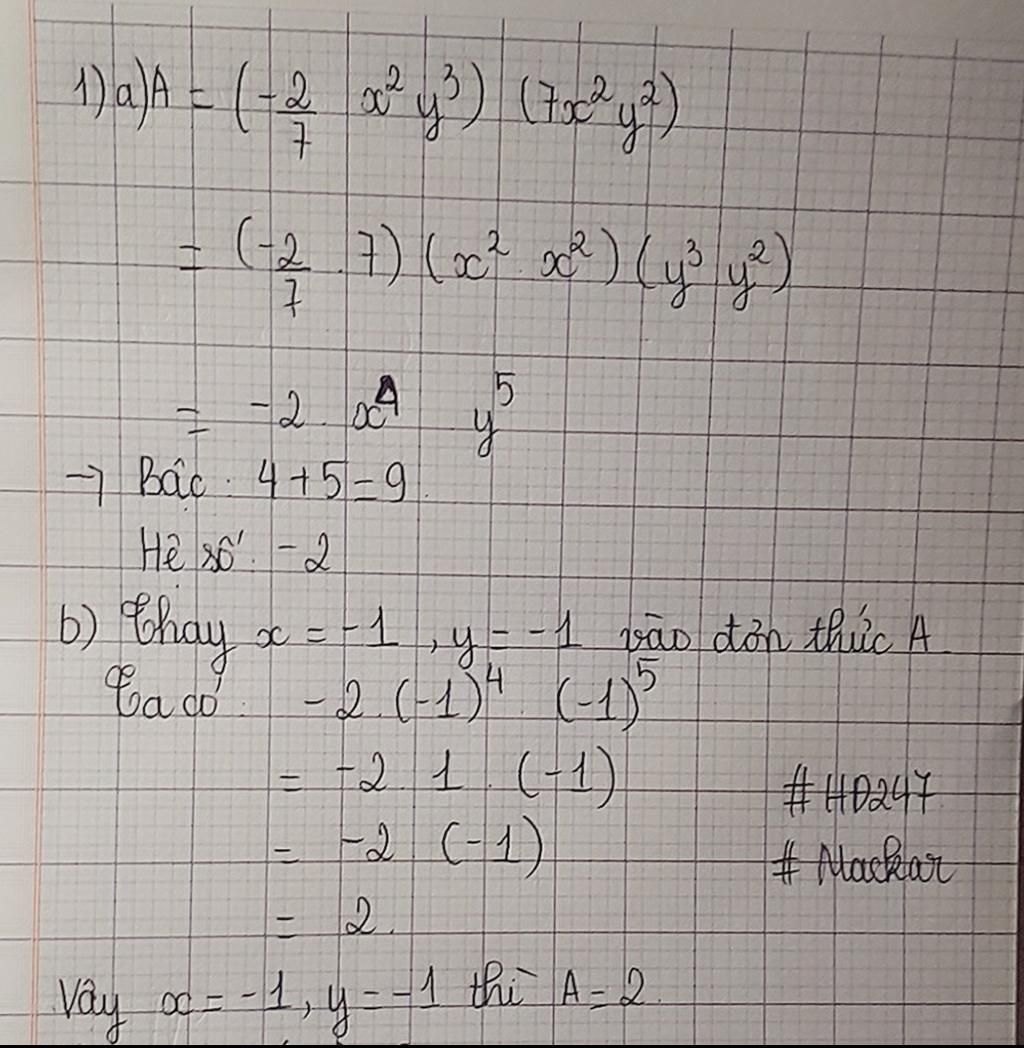 1) a) A = (-2/7 x² y³) (7x² y²)
= (-2/7 . 7) (x² . x²) (y³ y²)
= -2 . x⁴ y⁵
→ Bậc : 4 + 5 = 9
Hệ số : -2
b) Thay x = -1 , y = -1 vào đơn thức A
Ta có : -2 . (-1)⁴ . (-1)⁵
= -2 . 1 . (-1)
#HD247
= -2 (-1)
# Mackar
= 2.
Vậy x = -1 , y = -1 thì A = 2.